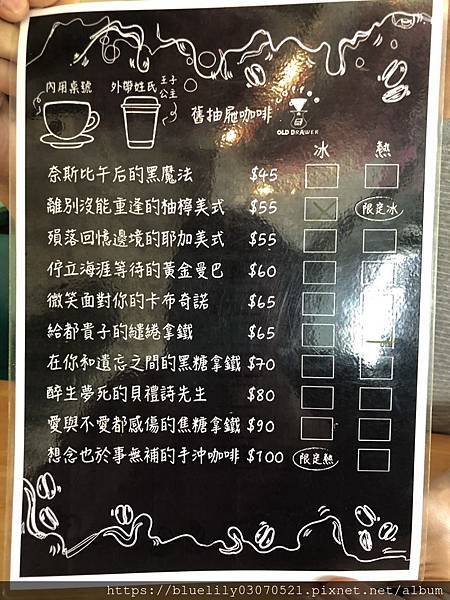 內用桌號 外帶姓氏 王子 公主
舊抽屜咖啡 OLD DRAWER
冰 熱
奈斯比午后的黑魔法 $45
離別沒能重逢的柚檸美式 $55 限定冰
殞落回憶邊境的耶加美式 $55
佇立海涯等待的黃金曼巴 $60
微笑面對你的卡布奇諾 $65
給都貴子的繾綣拿鐵 $65
在你和遺忘之間的黑糖拿鐵 $70
醉生夢死的貝禮詩先生 $80
愛與不愛都感傷的焦糖拿鐵 $90
想念也於事無補的手沖咖啡 $100 限定熱
https://bluelily03070521.pixnet.net/album